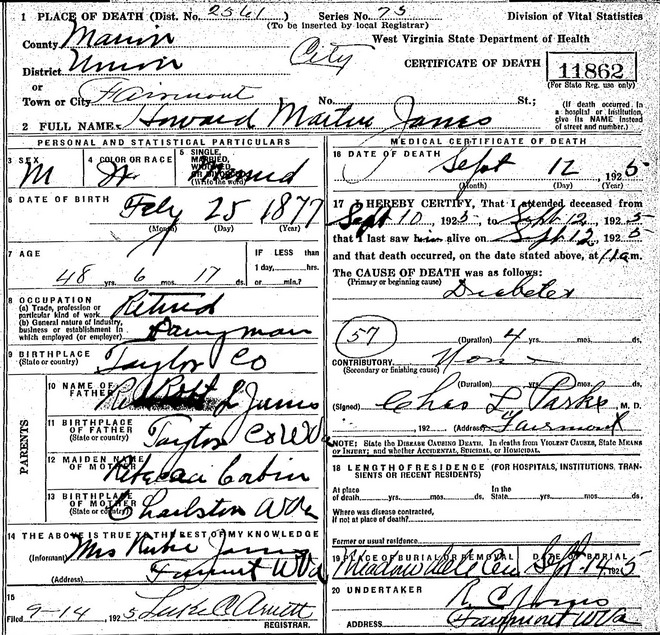 1 PLACE OF DEATH (Dist. No. 2561) Series No. 75 Division of Vital Statistics
(To be inserted by local Registrar)
County Marion West Virginia State Department of Health
District Union City CERTIFICATE OF DEATH
11862
or (For State Reg. use only)
Town or City Fairmont No. St.;
(If death occurred in a hospital or institution, give its NAME instead of street and number.)
2 FULL NAME Howard Martin James
PERSONAL AND STATISTICAL PARTICULARS
3 SEX M
4 COLOR OR RACE W
5 SINGLE, MARRIED, WIDOWED OR DIVORCED (Write the word)
6 DATE OF BIRTH Feby 25 1877
(Month) (Day) (Year)
7 AGE 48 yrs. 6 mos. 17 ds.
IF LESS than 1 day, hrs. or min.?
8 OCCUPATION
(a) Trade, profession or particular kind of work Retired
(b) General nature of industry, business or establishment in which employed (or employer) Dairyman
9 BIRTHPLACE (State or country) Taylor Co
PARENTS
10 NAME OF FATHER Robt L James
11 BIRTHPLACE OF FATHER (State or country) Taylor Co W Va
12 MAIDEN NAME OF MOTHER Rebecca Corbin
13 BIRTHPLACE OF MOTHER (State or country) Charlston W Va
14 THE ABOVE IS TRUE TO THE BEST OF MY KNOWLEDGE
(Informant) Mrs James
(Address) Fairmont W Va
15
Filed 9-14, 1925 Luke C Arnett
REGISTRAR.
MEDICAL CERTIFICATE OF DEATH
16 DATE OF DEATH Sept 12, 1925
(Month) (Day) (Year)
17 I HEREBY CERTIFY, That I attended deceased from
Sept 10, 1925, to Sept 12, 1925
that I last saw him alive on Sept 12, 1925
and that death occurred, on the date stated above, at 11 a m.
The CAUSE OF DEATH was as follows:
(Primary or beginning cause) Diabetes
57 (Duration) 4 yrs. mos. ds.
CONTRIBUTORY None
(Secondary or finishing cause)
(Duration) yrs. mos. ds.
(Signed) Chas L Parks, M. D.
, 192 (Address) Fairmont
NOTE: State the DISEASE CAUSING DEATH. In deaths from VIOLENT CAUSES, State MEANS OF INJURY; and whether ACCIDENTAL, SUICIDAL, or HOMICIDAL.
18 LENGTH OF RESIDENCE (FOR HOSPITALS, INSTITUTIONS, TRANSIENTS OR RECENT RESIDENTS)
At place of death, yrs. mos. ds. In the State, yrs. mos. ds.
Where was disease contracted, if not at place of death?
Former or usual residence
19 PLACE OF BURIAL OR REMOVAL Meadowdale Cem
DATE OF BURIAL Sept. 14, 1925
20 UNDERTAKER R C Jones
ADDRESS Fairmont W Va